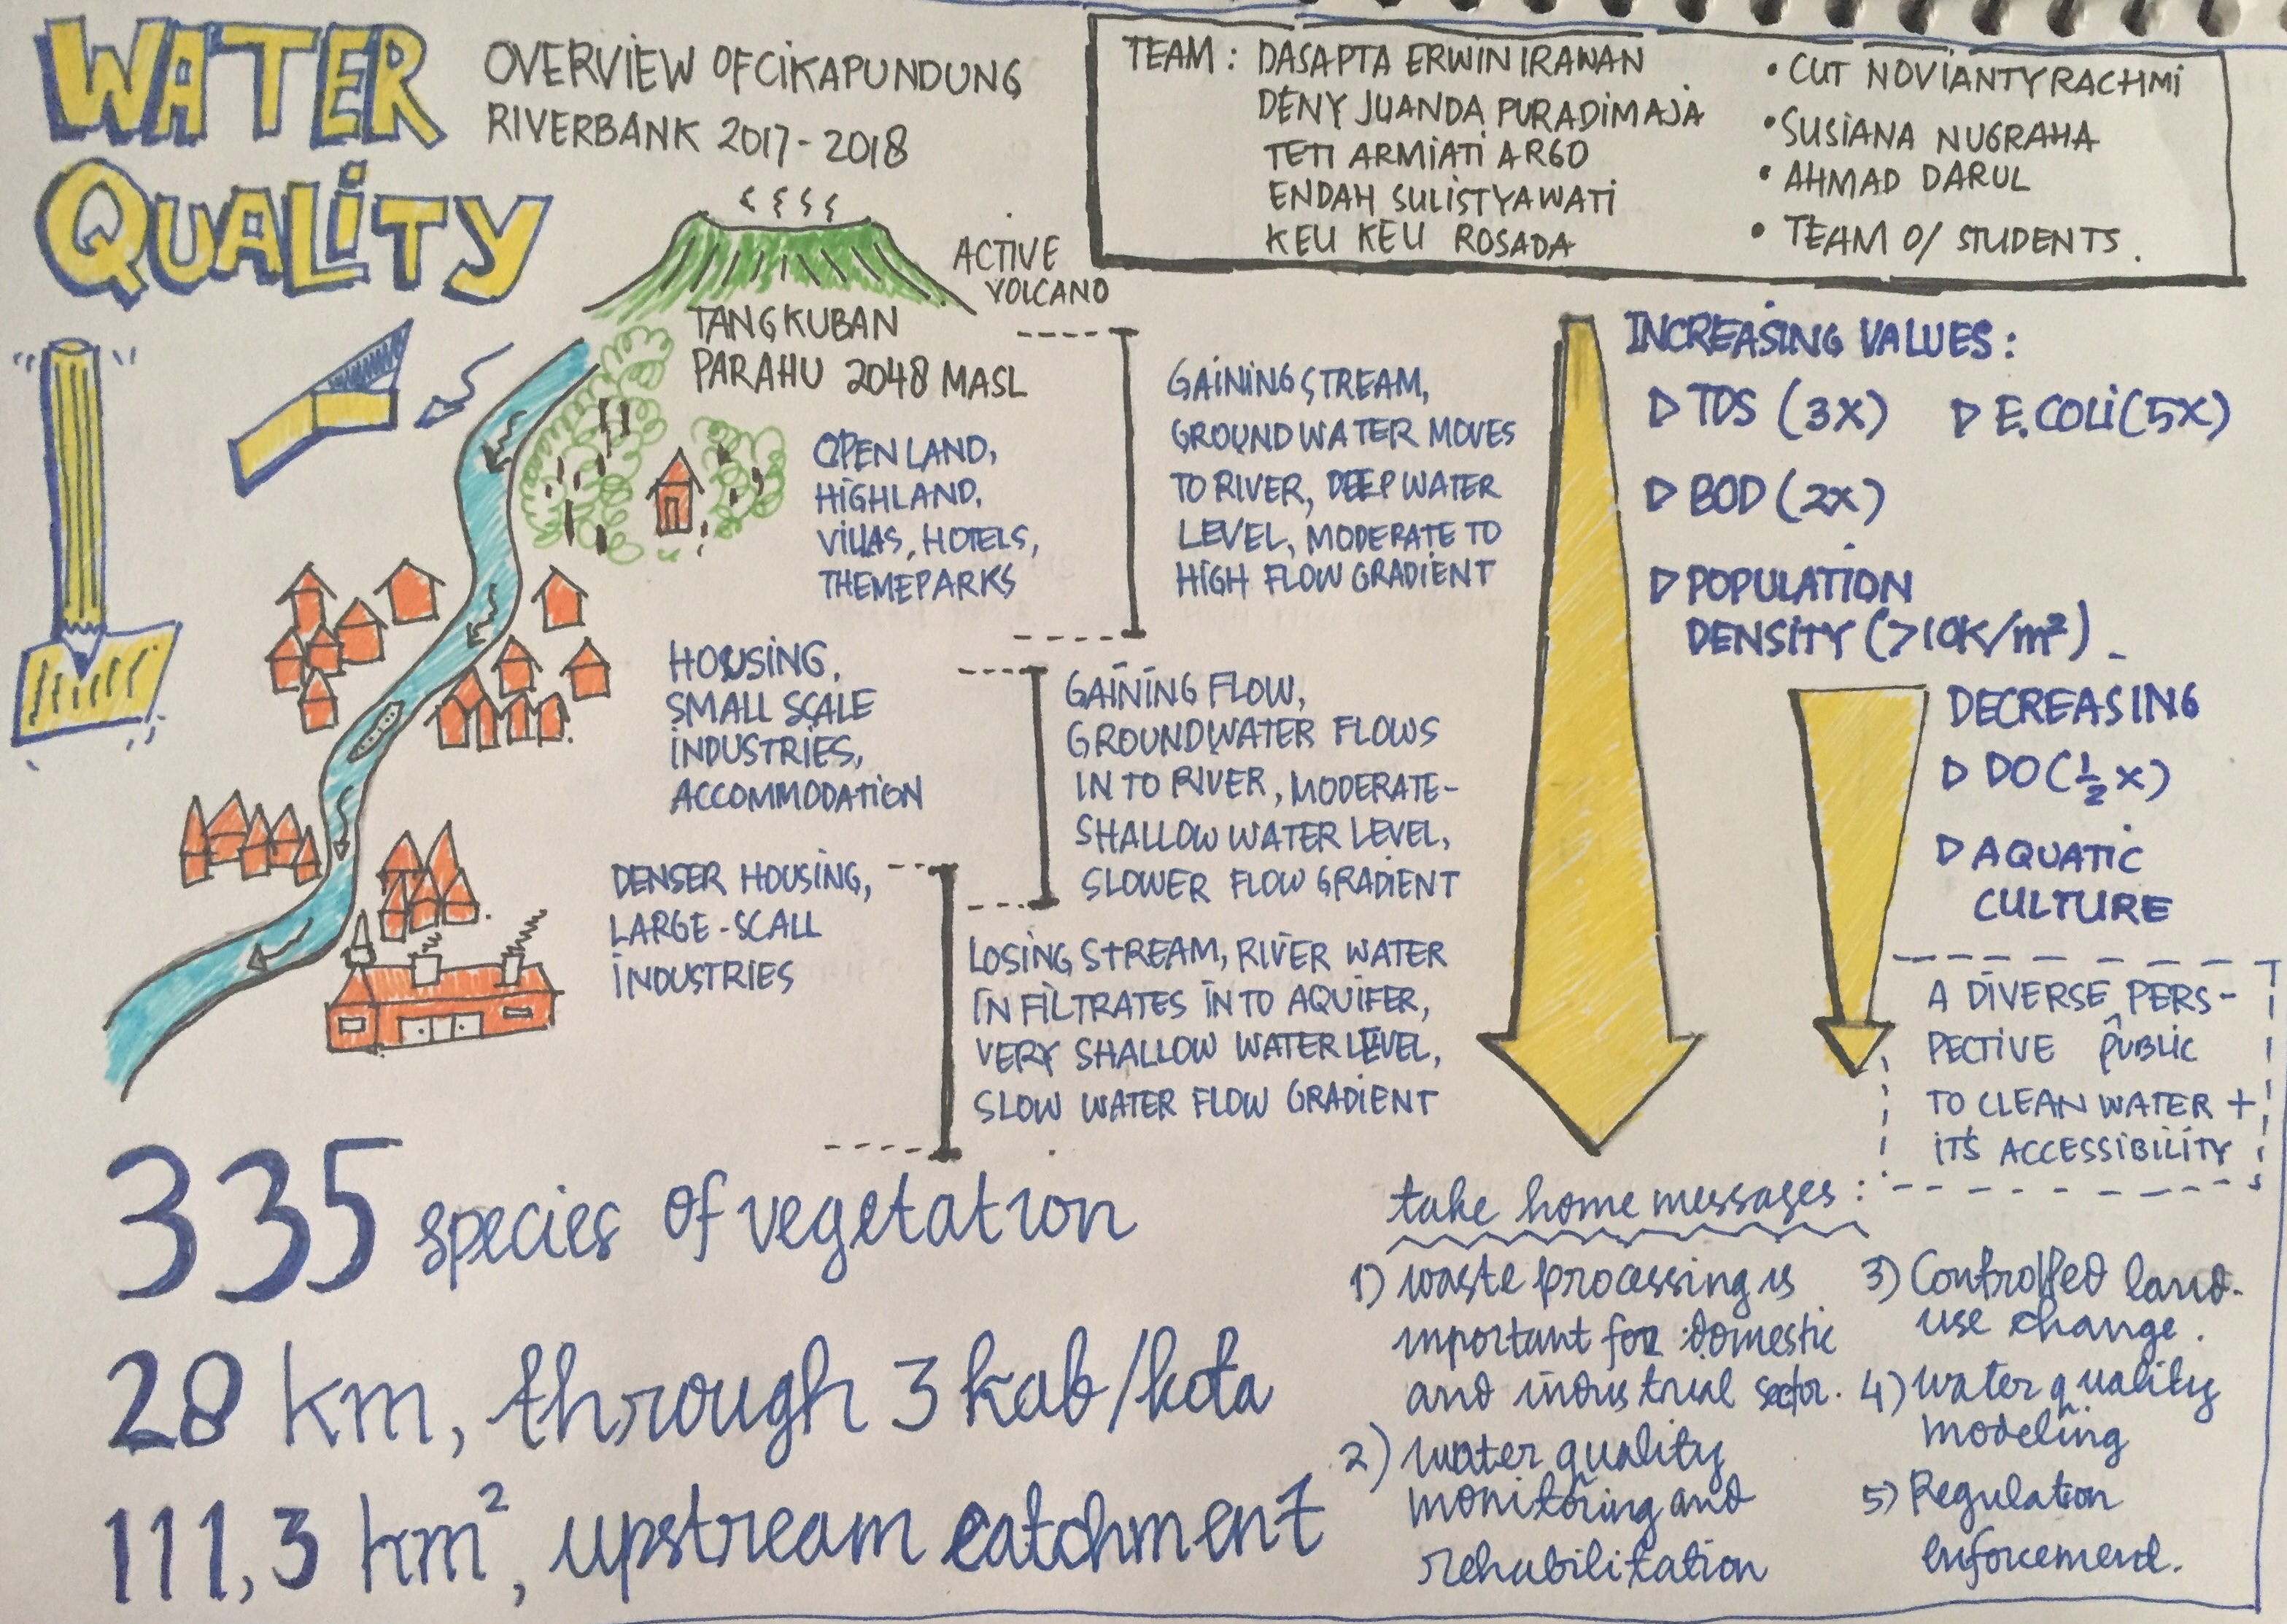 WATER
QUALITY
OVERVIEW OF CIKAPUNDUNG
RIVERBANK 2017-2018
TEAM : DASAPTA ERWIN IRAWAN
DENY JUANDA PURADIMAJA
TETI ARMIATI ARGO
ENDAH SULISTYAWATI
KEU KEU ROSADA
• CUT NOVIANTY RACHMI
• SUSIANA NUGRAHA
• AHMAD DARUL
• TEAM O/ STUDENTS.
ACTIVE
VOLCANO
TANGKUBAN
PARAHU 2048 MASL
OPEN LAND,
HIGHLAND,
VILLAS, HOTELS,
THEMEPARKS
GAINING STREAM,
GROUND WATER MOVES
TO RIVER, DEEP WATER
LEVEL, MODERATE TO
HIGH FLOW GRADIENT
HOUSING,
SMALL SCALE
INDUSTRIES,
ACCOMMODATION
GAINING FLOW,
GROUNDWATER FLOWS
IN TO RIVER, MODERATE-
SHALLOW WATER LEVEL,
SLOWER FLOW GRADIENT
DENSER HOUSING,
LARGE-SCALL
INDUSTRIES
LOSING STREAM, RIVER WATER
INFILTRATES INTO AQUIFER,
VERY SHALLOW WATER LEVEL,
SLOW WATER FLOW GRADIENT
INCREASING VALUES :
▷ TDS (3X) ▷ E.COLI (5X)
▷ BOD (2X)
▷ POPULATION
DENSITY (>10K/m²)
DECREASING
▷ DO (½ X)
▷ AQUATIC
CULTURE
A DIVERSE PERS-
PECTIVE PUBLIC
TO CLEAN WATER +
IT'S ACCESSIBILITY
335 species of vegetation
28 km, through 3 kab/kota
111,3 km², upstream catchment
take home messages :
1) waste processing is
important for domestic
and industrial sector.
2) water quality
monitoring and
rehabilitation
3) Controlled land-
use change.
4) water quality
modeling
5) Regulation
enforcement.